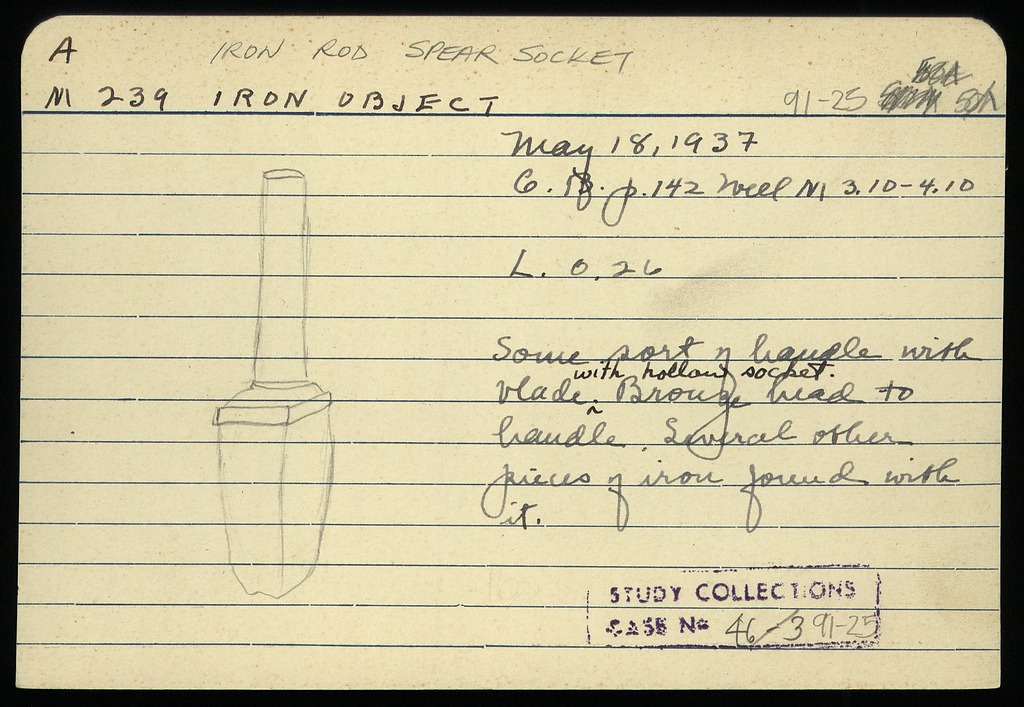 A IRON ROD SPEAR SOCKET
M 239 IRON OBJECT 91-25 BOX
May 18, 1937
p. 142 Well M 3.10-4.10
L. 0.26
Some sort of handle with
with hollow socket.
blade. Bronze head to
handle. Several other
pieces of iron found with
it.
STUDY COLLECTIONS
CASE No 46-3 91-25